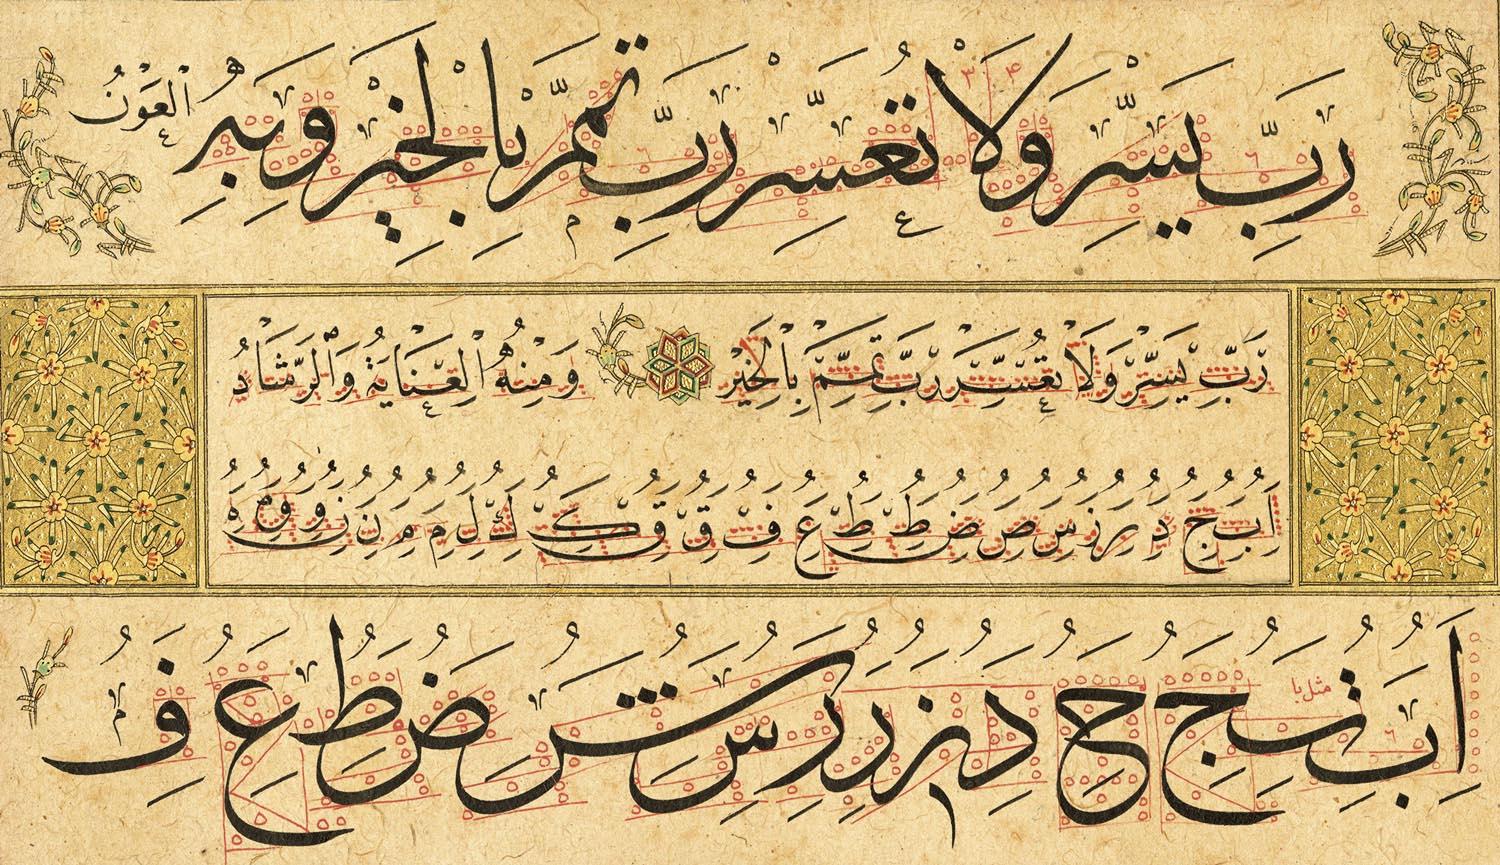 رَبِّ يَسِّرْ وَلَا تُعَسِّرْ رَبِّ تَمِّمْ بِالْخَيْرِ وَبِهِ الْعَوْنُ
رَبِّ يَسِّرْ وَلَا تُعَسِّرْ رَبِّ تَمِّمْ بِالْخَيْرِ وَمِنْهُ الْعِنَايَةُ وَالرَّشَادُ
ا ب ج د ر ز س ص ض ط ط ع ف ق ق ك ك ل م م ن ن و و ه
ا ب ت ج ح د ز ر ر س ش ض ط ع ف
مثل با